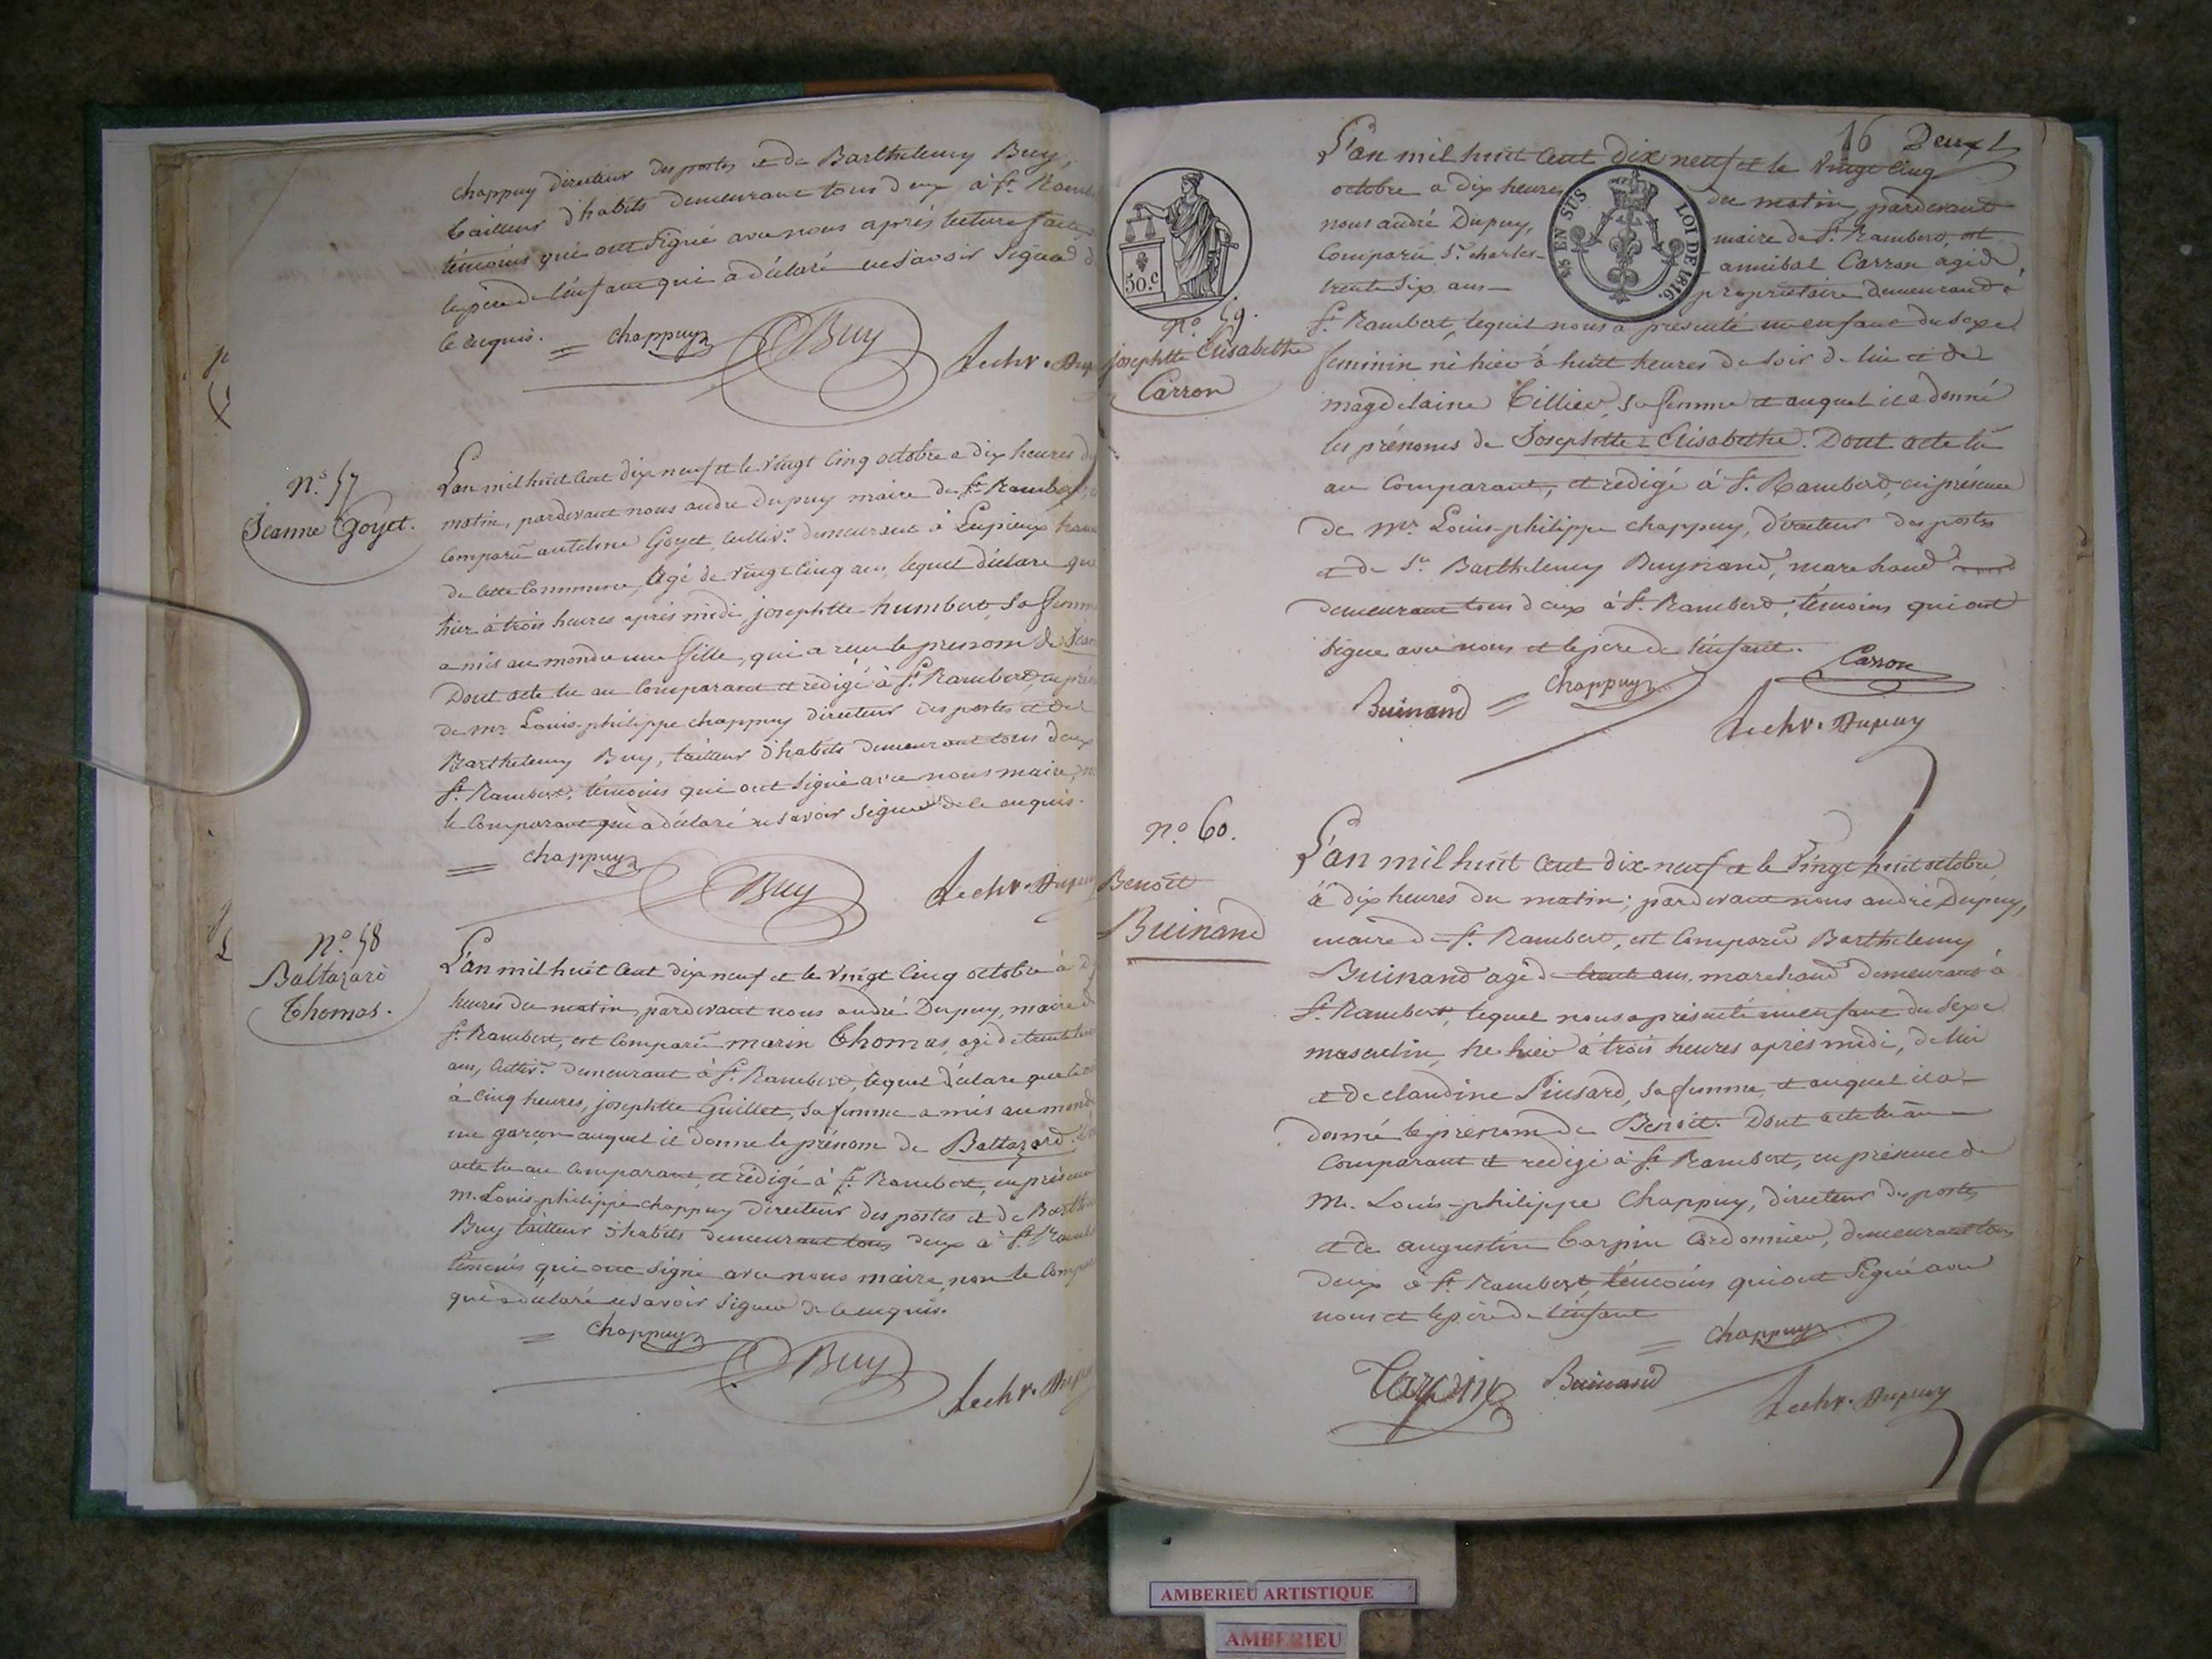 chappuy directeur des postes et de Barthelemy Buy,
tailleur d'habits demeurant tous deux à St. Ramb
témoins qui ont signé avec nous après lecture faite
le père de l'enfant qui a déclaré ne savoir signer d
le enquis. = chappuy Buy
n.° 57
Jeanne Goyet.
L'an mil huit cent dix neuf et le vingt cinq octobre a dix heures du
matin, pardevant nous andré dupuy maire de St. Rambert,
comparu antelme Goyet, cultivr. demeurant à Lupieux ham
de cette commune, agé de vingt cinq ans, lequel déclare que
hier à trois heures après midi josephtte humbert, sa femm
a mis au monde une fille, qui a reçu le prenom de Jean
Dont acte lu au comparant et redigé à St. Rambert, en prés
de mr. Louis-philippe chappuy directeur des postes et de
Barthelemy Buy, tailleur d'habits demeurant tous deux
St. Rambert, témoins qui ont signé avec nous maire, no
le comparant qui a déclaré ne savoir signer de ce enquis.
= chappuy Buy
N.° 58
Baltazard
Thomas.
L'an mil huit cent dix neuf et le vingt cinq octobre à d
heures du matin, pardevant nous andré Dupuy, maire d
St. Rambert, est comparu marin Thomas, agé de trente
ans, cultivr. demeurant à St. Rambert, lequel déclare que
à cinq heures, josephtte Guillet, sa femme a mis au mond
un garçon auquel il donne le prénom de Baltazard.
acte lu au comparant, et rédigé à St. Rambert, en présence
m. Louis-philippe chappuy directeur des postes et de Barth
Buy tailleur d'habits demeurant tous deux à St. Ramb
témoins qui ont signé avec nous maire, non le compar
qui a déclaré ne savoir signer de ce enquis.
= chappuy Buy
16 Deux
EN SUS LOI DE 1816.
50.c
n.° 59.
josephtte Elisabethe
Carron
L'an mil huit cent dix neuf et le vingt cinq
octobre a dix heures du matin, pardevant
nous andré Dupuy, maire de St. Rambert, est
comparu Sr. charles- annibal Carron agé de
trente six ans propriétaire demeurant à
St. Rambert, lequel nous a présenté un enfant du sexe
feminin né hier à huit heures de soir de lui et de
magdelaine Tillier, sa femme et auquel il a donné
les prénoms de Josephtte - Elisabethe. Dont acte lu
au comparant, et redigé à St. Rambert, en présence
de mr. Louis-philippe chappuy, directeur des postes
et de Sr. Barthelemy Buynand, marchand
demeurant tous deux à St. Rambert, témoins qui ont
signe avec nous et le père de l'enfant.
Carron
Buinand = Chappuy
Dupuy
n.° 60.
Benoit
Buinand
L'an mil huit cent dix-neuf et le vingt huit octobre,
à dix heures du matin; pardevant nous andré Dupuy,
maire de St. Rambert, est comparu Barthelemy
Buinand agé de trente ans. marchand demeurant à
St. Rambert, lequel nous a présenté un enfant du sexe
masculin, né hier à trois heures après midi, de lui
et de claudine Pinsard, sa femme, et auquel il a
donné le prénom de Benoit. Dont acte lu au
comparant et redigé à St. Rambert, en présence de
M. Louis-philippe Chappuy, directeur des postes
et de augustin Tarpin cordonnier, demeurant tous
deux à St. Rambert, témoins qui ont signé avec
nous et le père de l'enfant
= Chappuy
Tarpin Buinand
Dupuy
AMBERIEU ARTISTIQUE
AMBERIEU